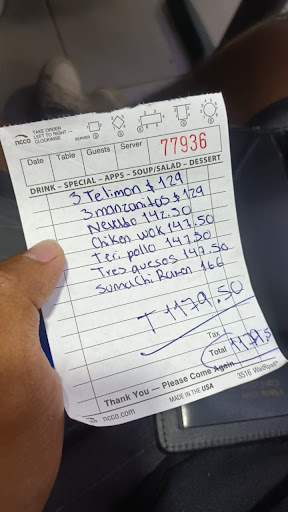 ncco
TAKE ORDER
LEFT TO RIGHT
CLOCKWISE
SERVER
Date Table Guests Server 77936
DRINK – SPECIAL – APPS – SOUP/SALAD – DESSERT
3 Te limon $ 129
3 manzanitas $ 129
Nevado 142.50
Chiken wok 147.50
Teri pollo 147.50
Tres quesos 147.50
Sumachi Ramen 166
T 1179.50
Tax
Total 1179.5
Thank You — Please Come Again
ncco.com MADE IN THE USA 3516 WaitRpad®